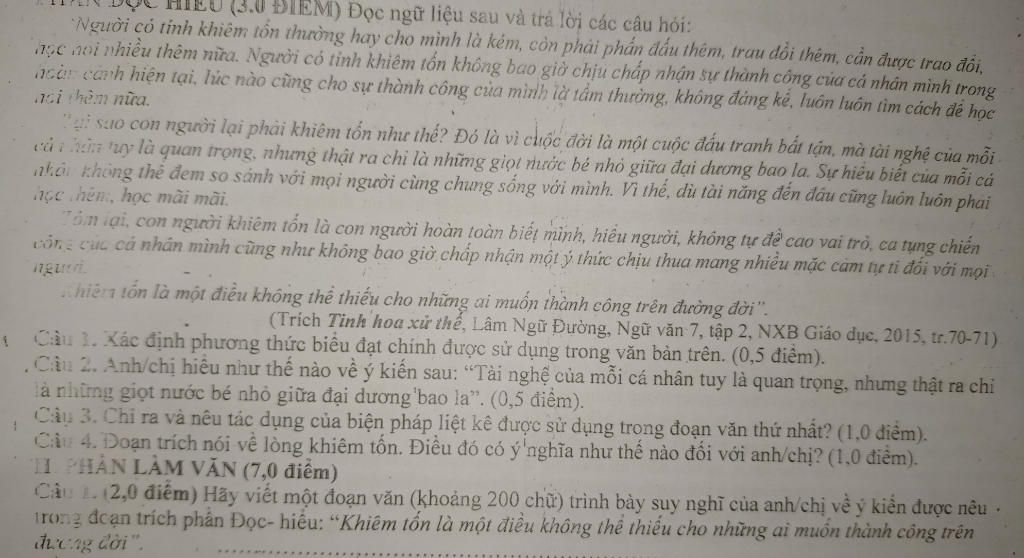 ĐỌC HIỂU (3.0 ĐIỂM) Đọc ngữ liệu sau và trả lời các câu hỏi:
"Người có tính khiêm tốn thường hay cho mình là kém, còn phải phấn đấu thêm, trau dồi thêm, cần được trao đổi,
học hỏi nhiều thêm nữa. Người có tính khiêm tốn không bao giờ chịu chấp nhận sự thành công của cá nhân mình trong
hoàn cảnh hiện tại, lúc nào cũng cho sự thành công của mình là tầm thường, không đáng kể, luôn luôn tìm cách để học
hỏi thêm nữa.
Tại sao con người lại phải khiêm tốn như thế? Đó là vì cuộc đời là một cuộc đấu tranh bất tận, mà tài nghệ của mỗi
cá nhân tuy là quan trọng, nhưng thật ra chỉ là những giọt nước bé nhỏ giữa đại dương bao la. Sự hiểu biết của mỗi cá
nhân không thể đem so sánh với mọi người cùng chung sống với mình. Vì thế, dù tài năng đến đâu cũng luôn luôn phải
học thêm, học mãi mãi.
Tóm lại, con người khiêm tốn là con người hoàn toàn biết mình, hiểu người, không tự đề cao vai trò, ca tụng chiến
công của cá nhân mình cũng như không bao giờ chấp nhận một ý thức chịu thua mang nhiều mặc cảm tự ti đối với mọi
người.
Khiêm tốn là một điều không thể thiếu cho những ai muốn thành công trên đường đời".
(Trích Tinh hoa xử thế, Lâm Ngữ Đường, Ngữ văn 7, tập 2, NXB Giáo dục, 2015, tr.70-71)
Câu 1. Xác định phương thức biểu đạt chính được sử dụng trong văn bản trên. (0,5 điểm).
Câu 2. Anh/chị hiểu như thế nào về ý kiến sau: "Tài nghệ của mỗi cá nhân tuy là quan trọng, nhưng thật ra chỉ
là những giọt nước bé nhỏ giữa đại dương bao la". (0,5 điểm).
Câu 3. Chỉ ra và nêu tác dụng của biện pháp liệt kê được sử dụng trong đoạn văn thứ nhất? (1,0 điểm).
Câu 4. Đoạn trích nói về lòng khiêm tốn. Điều đó có ý nghĩa như thế nào đối với anh/chị? (1,0 điểm).
II. PHẦN LÀM VĂN (7,0 điểm)
Câu 1. (2,0 điểm) Hãy viết một đoạn văn (khoảng 200 chữ) trình bày suy nghĩ của anh/chị về ý kiến được nêu
trong đoạn trích phần Đọc- hiểu: "Khiêm tốn là một điều không thể thiếu cho những ai muốn thành công trên
đường đời".